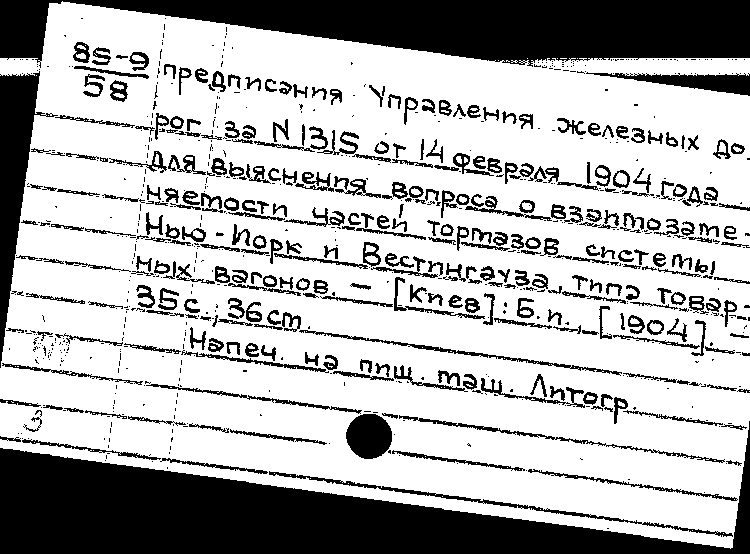 85-9
58
предписания Управления железных до-
рог за N 1315 от 14 февраля 1904 года
для выяснения вопроса о взаимозаме-
няемости частей тормазов системы
Нью-Йорк и Вестингауза, типа товар-
ных вагонов. — [Киев]: Б.и., [1904]. —
35 с.; 36 см.
Напеч. на пиш. маш. Литогр.
3